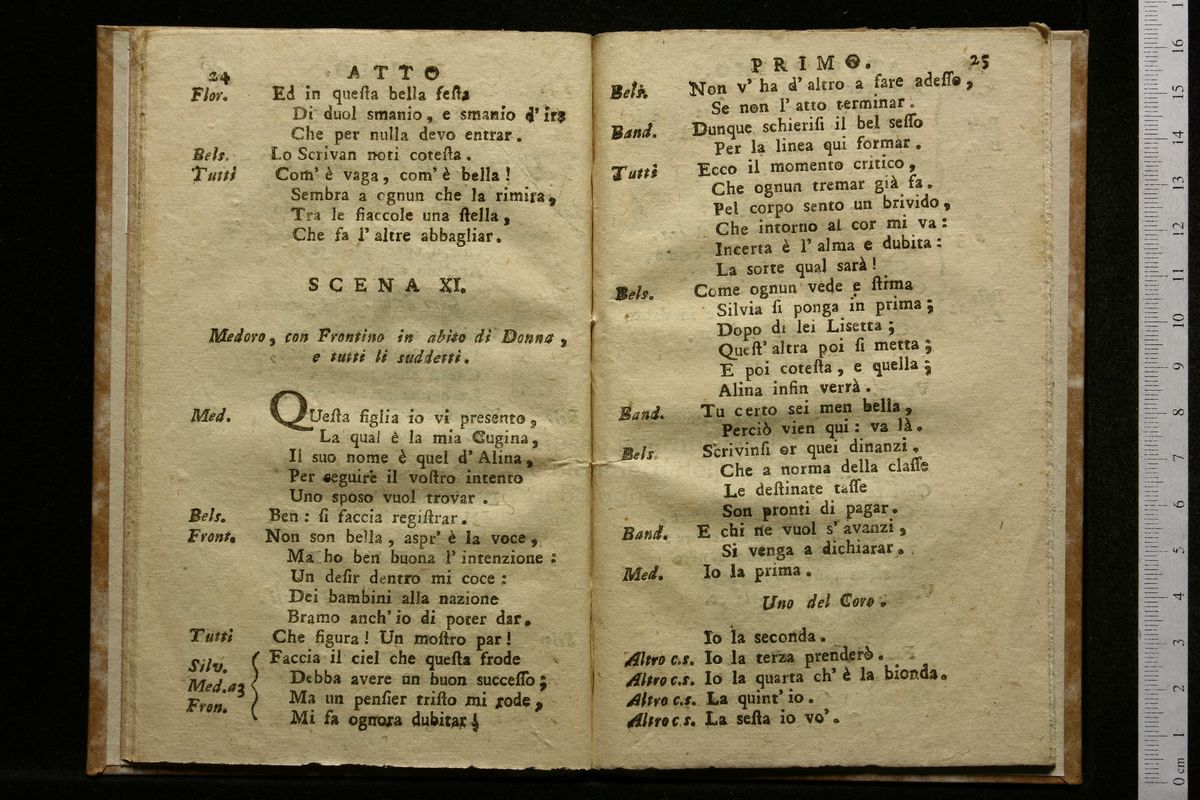 24 ATTO
Flor. Ed in queſta bella feſta
Di duol smanio, e smanio d' ira
Che per nulla devo entrar.
Bels. Lo Scrivan noti coteſta.
Tutti Com' è vaga, com' è bella!
Sembra a ognun che la rimira,
Tra le fiaccole una ſtella,
Che fa l' altre abbagliar.
SCENA XI.
Medoro, con Frontino in abito di Donna,
e tutti li suddetti.
Med. QUeſta figlia io vi presento,
La qual è la mia Cugina,
Il suo nome è quel d' Alina,
Per seguire il voſtro intento
Uno sposo vuol trovar.
Bels. Ben: ſi faccia regiſtrar.
Front. Non son bella, aspr' è la voce,
Ma ho ben buona l' intenzione:
Un deſir dentro mi coce:
Dei bambini alla nazione
Bramo anch' io di poter dar.
Tutti Che figura! Un moſtro par!
Silv. Faccia il ciel che queſta frode
Med. a3 Debba avere un buon succeſſo;
Fron. Ma un penſier triſto mi rode,
Mi fa ognora dubitar!
PRIMO. 25
Bels. Non v' ha d' altro a fare adeſſo,
Se non l' atto terminar.
Band. Dunque schieriſi il bel seſſo
Per la linea qui formar.
Tutti Ecco il momento critico,
Che ognun tremar già fa.
Pel corpo sento un brivido,
Che intorno al cor mi va:
Incerta è l' alma e dubita:
La sorte qual sarà!
Bels. Come ognun vede e ſtima
Silvia ſi ponga in prima;
Dopo di lei Lisetta;
Queſt' altra poi ſi metta;
E poi coteſta, e quella;
Alina infin verrà.
Band. Tu certo sei men bella,
Perciò vien qui: va là.
Bels. Scrivinſi or quei dinanzi,
Che a norma della claſſe
Le deſtinate taſſe
Son pronti di pagar.
Band. E chi ne vuol s' avanzi,
Si venga a dichiarar.
Med. Io la prima.
Uno del Coro.
Io la seconda.
Altro c.s. Io la terza prenderò.
Altro c.s. Io la quarta ch' è la bionda.
Altro c.s. La quint' io.
Altro c.s. La seſta io vo'.
0 cm 1 2 3 4 5 6 7 8 9 10 11 12 13 14 15 16